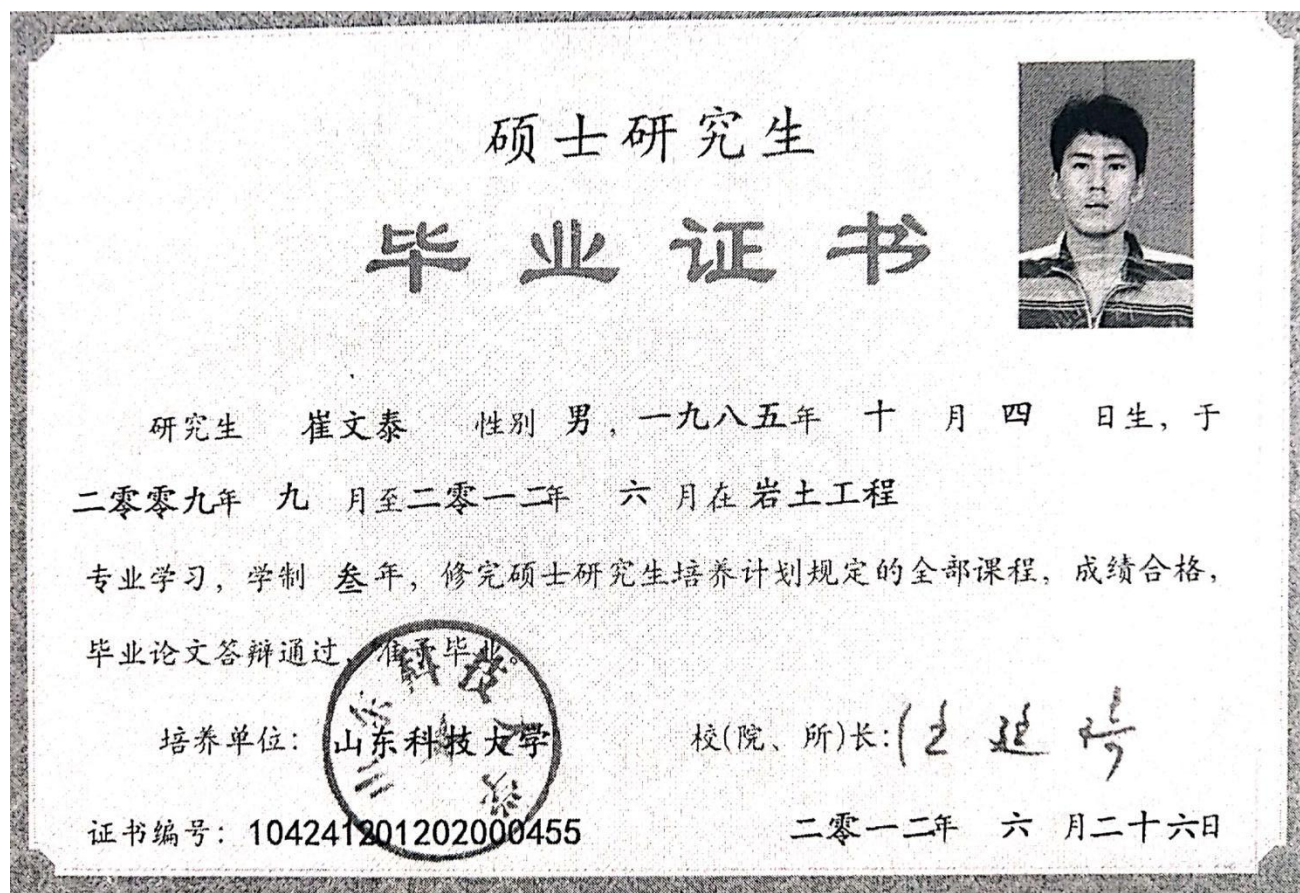 硕士研究生
毕业证书
研究生 崔文泰 性别 男，一九八五年 十 月 四 日生，于
二零零九年 九 月至二零一二年 六 月在 岩土工程
专业学习，学制 叁年，修完硕士研究生培养计划规定的全部课程，成绩合格，
毕业论文答辩通过，准予毕业。
培养单位：山东科技大学
校(院、所)长：
证书编号：104241201202000455
二零一二年 六 月二十六日